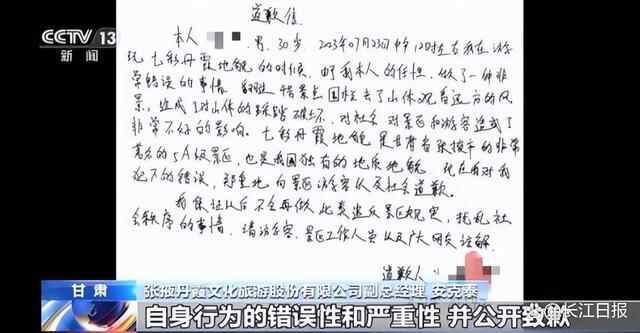 CCTV 13
新闻
道歉信
本人 男, 30岁 2023年07月23日中午12时左右我在游
玩七彩丹霞地貌的时候, 由于我本人的任性, 做了一件非
常错误的事情 翻越 景点围栏去了山体观看远方的风
景, 造成了对山体的踩踏破坏, 对社会 对景区和游客造成了
非常不好的影响。七彩丹霞地貌 是甘肃省张掖市的非常
著名的5A级景区, 也是我国独有的地质地貌, 现在我对我
犯下的错误, 郑重地向景区游客以及社会道歉。
我保证以后不会再做此类违反景区规定, 扰乱社
会秩序的事情, 请游客, 景区工作人员以及广大网友谅解
道歉人:
甘肃 张掖丹霞文化旅游股份有限公司副总经理 安克泰
自身行为的错误性和严重性 并公开致歉
@长江日报